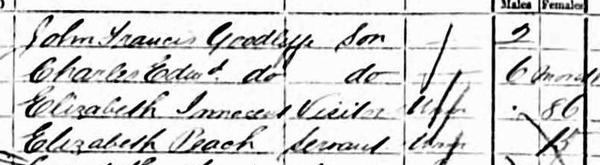 Males Females
John Francis Goodliffe Son 2
Charles Edwd. do do 6 months
Elizabeth Innocent Visitor Unm 86
Elizabeth Peach Servant Unm 15